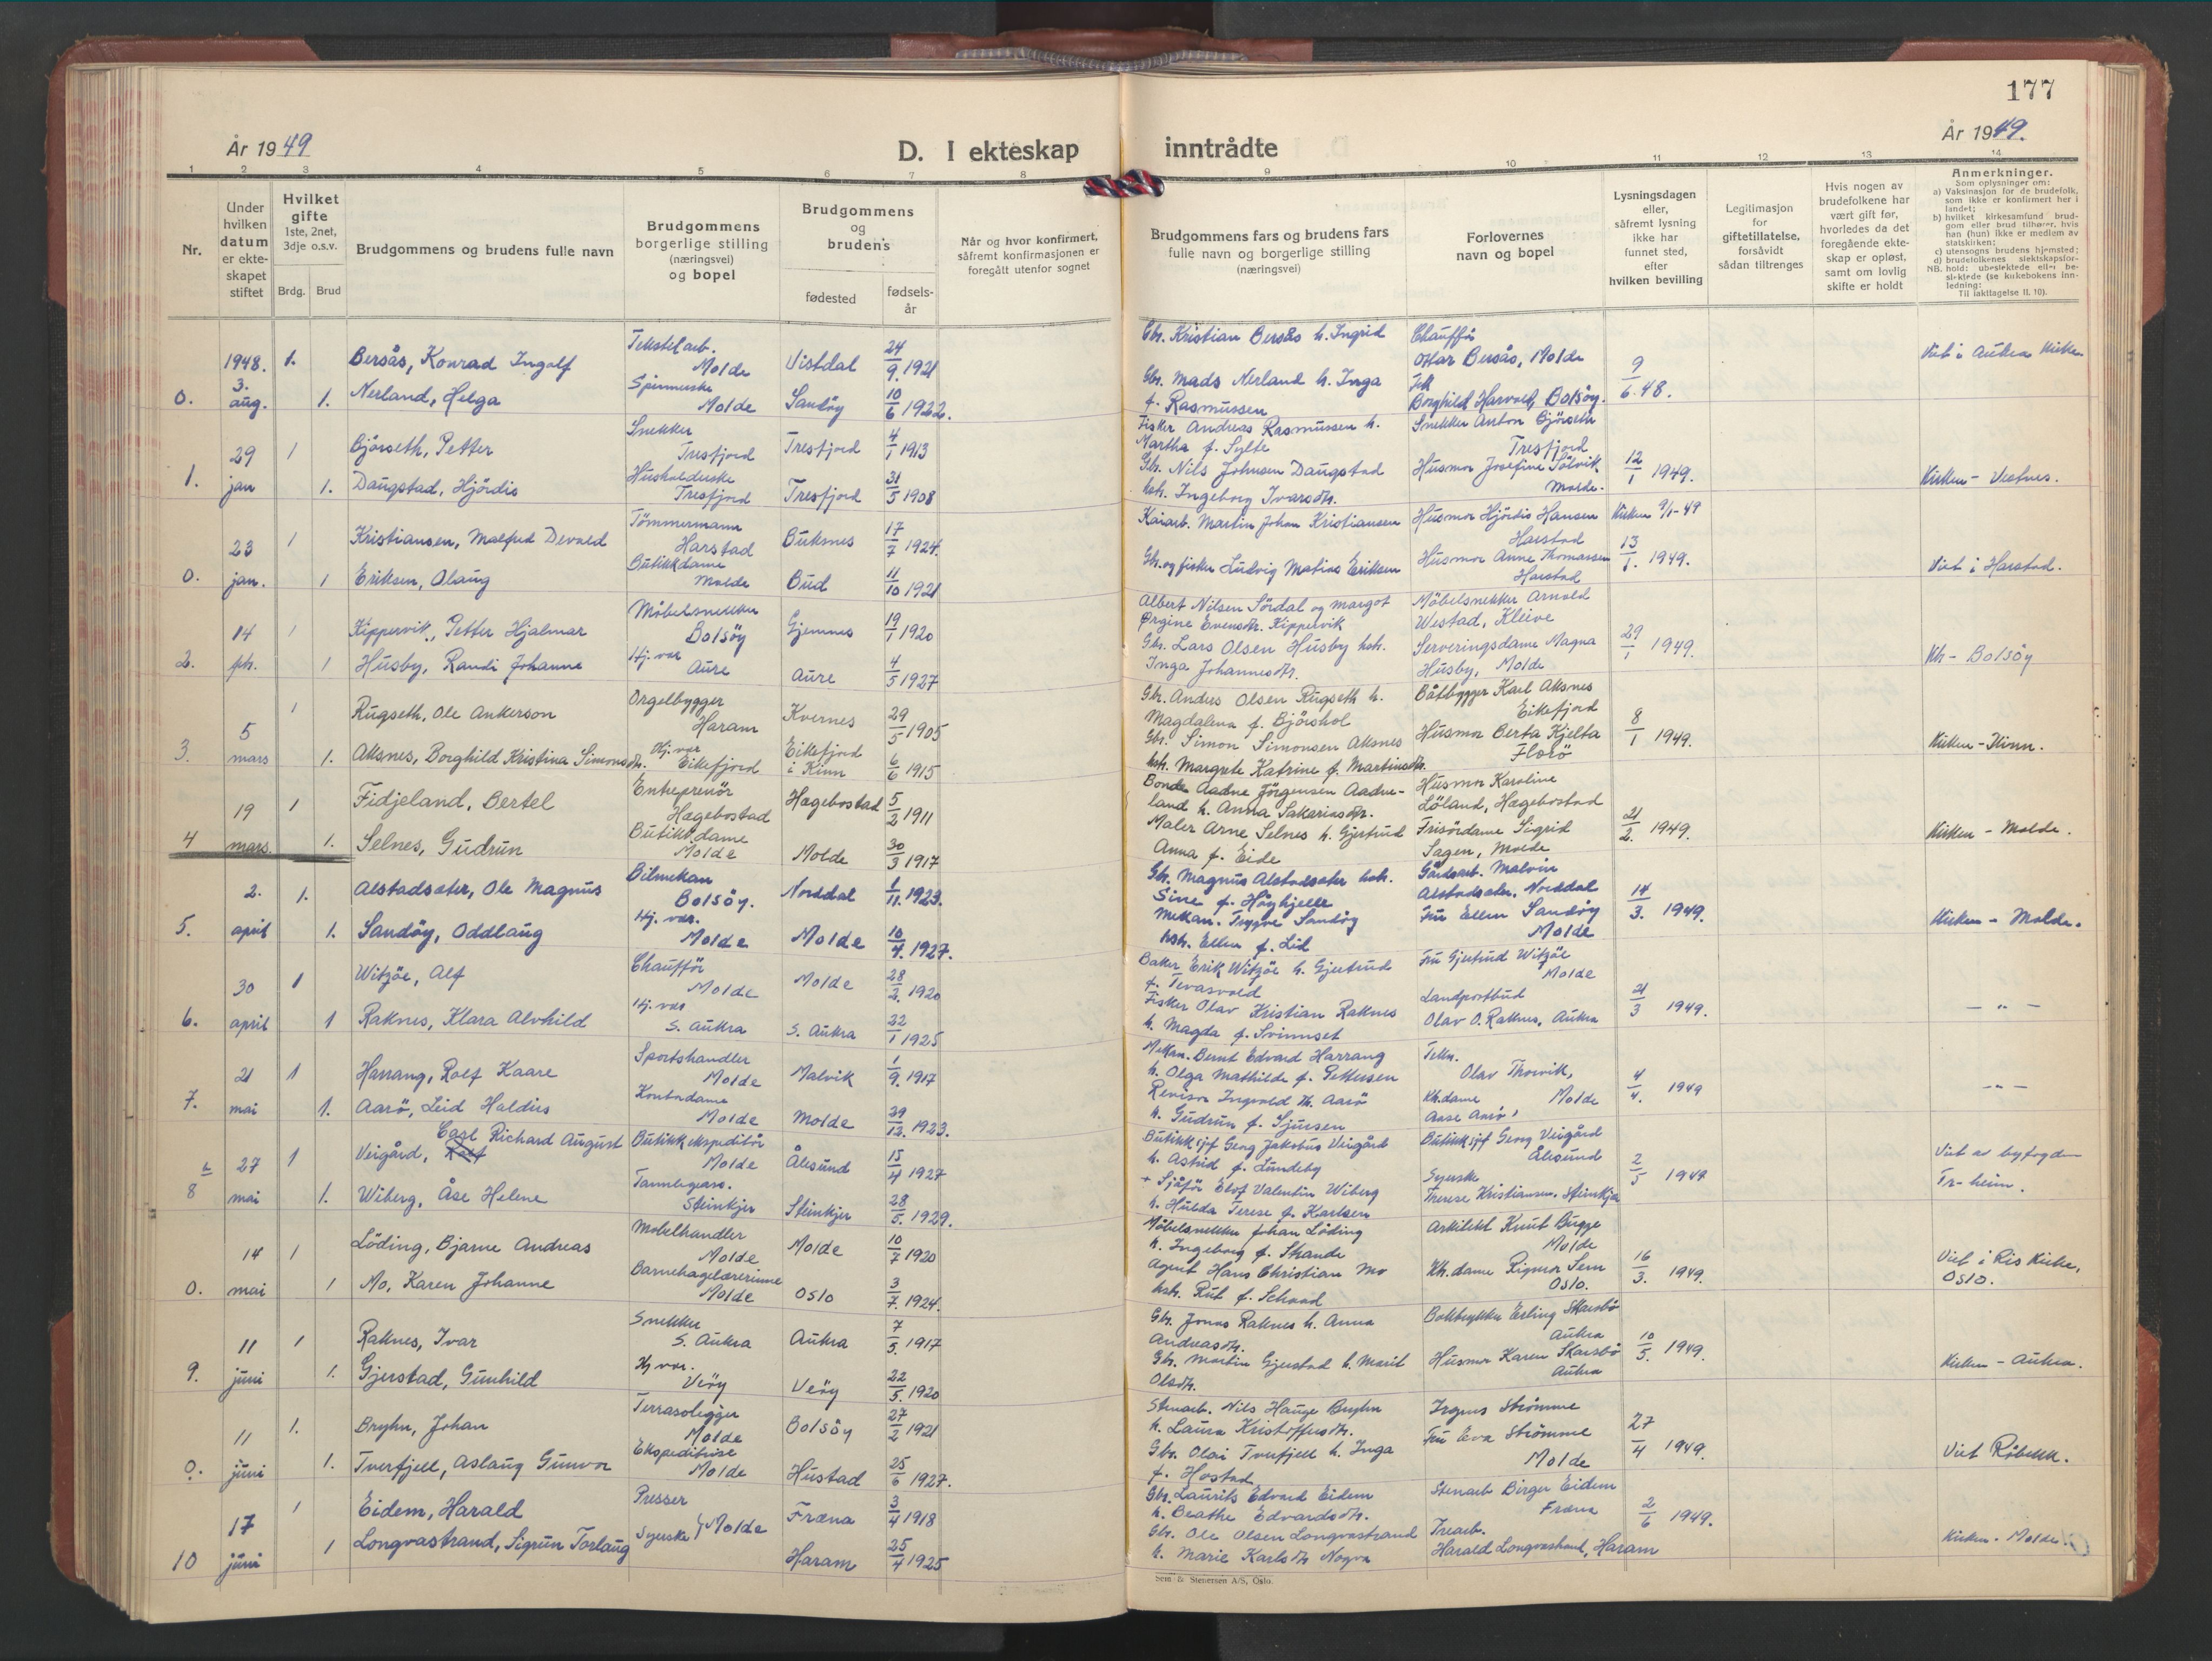 177
År 1949
D. I ekteskap inntrådte
År 1949.
1 2 3 4 5 6 7 8 9 10 11 12 13 14
Nr.
Under hvilken datum er ekte-skapet stiftet
Hvilket gifte 1ste, 2net, 3dje o.s.v.
Brdg. Brud
Brudgommens og brudens fulle navn
Brudgommens borgerlige stilling (næringsvei) og bopel
Brudgommens og brudens
fødested
fødsels-år
Når og hvor konfirmert, såfremt konfirmasjonen er foregått utenfor sognet
Brudgommens fars og brudens fars fulle navn og borgerlige stilling (næringsvei)
Forlovernes navn og bopel
Lysningsdagen eller, såfremt lysning ikke har funnet sted, efter hvilken bevilling
Legitimasjon for giftetillatelse, forsåvidt sådan tiltrenges
Hvis nogen av brudefolkene har vært gift før, hvorledes da det foregående ekte-skap er opløst, samt om lovlig skifte er holdt
Anmerkninger.
Som oplysninger om:
a) Vaksinasjon for de brudefolk, som ikke er konfirmert her i landet;
b) hvilket kirkesamfund brud-gom eller brud tilhører, hvis han (hun) ikke er medlem av statskirken;
c) utensogns brudens hjemsted;
d) brudefolkenes slektskapsfor-hold: ubeslektede eller be-slektede (se kirkebokens inn-ledning: Til iakttagelse II. 10).
NB.
1948. 1. Bersås, Konrad Ingolf Tekstilarb. Molde Vistdal 24/9 1921 Gbr. Kristian Bersås h. Ingrid Chauffør Ottar Bersås, Molde 9/6.48. Viet i Aukra kirke
0. 3. aug. 1. Nerland, Helga Spinnerske Molde Sandöy 10/6 1922. Gbr. Mads Nerland h. Inga f. Rasmussen Borghild Harvold, Bolsöy.
29 1 Gjörseth, Petter Snekker Tresfjord Tresfjord 4/1 1913 Fisker Andreas Rasmussen h. Martha f. Sylte Snekker Anton Gjörseth Tresfjord 12/1 1949. Kirken - Vestnes.
1. jan 1. Daugstad, Hjördis Husholderske Tresfjord Tresfjord 31/5 1908 Gbr. Nils Johnsen Daugstad hsh. Ingeborg Ivarsdtr. Husmor Josefine Sölvik Molde.
23 1 Kristiansen, Malfred Devold Tömmermann Harstad Buksnes 17/7 1924. Kaiarb. Martin Johan Kristiansen Husmor Hjördis Hansen Harstad Kirken 9/1-49
0. jan. 1 Eriksen, Olaug Butikkdame Molde Bud 11/10 1921 Gbr. og fisker Ludvig Matias Eriksen Husmor Anne Thomassen Harstad 13/1. 1949. Viet i Harstad.
14 1 Kippervik, Petter Hjalmar Möbelsnekker Bolsöy Gjemnes 19/1 1920 Albert Nilsen Sördal og Margot Ørgine Evensdtr. Kippervik Möbelsnekker Arnold Westad, Kleive 29/1 1949. Kh - Bolsöy
2. feb. 1 Husby, Randi Johanne Hj. vær Aure Aure 4/5 1927 Gbr. Lars Olsen Husby hsh. Inga Johannesdtr. Serveringsdame Magna Husby, Molde
1 Rugseth, Ole Ankerson Orgelbygger Haram Kvernes 29/5 1905 Gbr. Anders Olsen Rugseth h. Magdalena f. Bjöishol Båtbygger Karl Aksnes Eikefjord 8/1 1949. Kirken - Kinn.
3. 5 mars 1. Aksnes, Borghild Kristina Simonsdtr. Hj. vær Eikefjord Eikefjord i Kinn 6/6 1915 Gbr. Simon Simonsen Aksnes hsh. Margrete Katrine f. Martinsdtr. Husmor Berta Kjelta Florö
19 1 Fidjeland, Bertel Entreprenör Hægebostad Hægebostad 5/2 1911 Bonde Aadne Jörgensen Aadne-land h. Anna Sakariasdtr. Husmor Karoline Löland, Hægebostad 21/2. 1949. Kirken - Molde.
4 mars. 1. Selnes, Gudrun Butikkdame Molde Molde 30/3 1917 Maler Arne Selnes h. Gjertrud Anna f. Eide Frisördame Sigrid Sagen, Molde
2. 1. Alstadsæter, Ole Magnus Bilmekan Bolsöy. Norddal 1/11. 1923. Gbr. Magnus Alstadsæter hsh. Sine f. Höghjelle Gårdsarb. Malvin Alstadsæter. Norddal 14/3. 1949. Kirken - Molde.
5. april 1. Sandöy, Oddlaug Hj. vær. Molde Molde 10/4. 1927. Mekan. Trygve Sandöy hsh. Ellen f. Lid Fru Ellen Sandöy Molde
30 1 Witzöe, Alf Chauffør Molde Molde 28/2. 1920 Baker Erik Witzöe h. Gjertrud f. Tevasvold Fru Gjertrud Witzöe Molde 21/3 1949. - " -
6. april 1 Raknes, Klara Alvhild Hj. vær S. Aukra S. Aukra 22/1 1925 Fisker Olav Kristian Raknes h. Magda f. Svinnset Landpostbud Olav O. Raknes, Aukra
21 1 Harrang, Rolf Kaare Sportshandler Molde Malvik 1/9. 1917 Mekan. Bernt Edvard Harrang h. Olga Mathilde f. Pettersen Tekn. Olav Thorvik, Molde 4/4. 1949 - " -
7. mai 1. Aarö, Leid Haldis Kontordame Molde Molde 29/12. 1923. Revisor Ingvald M. Aarö h. Gudrun f. Sjursen Kh.dame Aase Aarö
27 1 Veigård, Carl Richard August Butikkekspeditör Molde Ålesund 15/4 1927 Butikksjef Georg Jakobus Veigård h. Astrid f. Lundeby Butikksjef Georg Veigård Ålesund 2/5 1949 Viet av byfogden Tr-heim.
8 mai 1. Wiberg, Åse Helene Steinkjer Steinkjer 28/5. 1929. + Sjåför Elof Valentin Wiberg h. Hulda Terese f. Karlsen Syerske Therese Kristiansen. Steinkjer
14 1 Löding, Bjarne Andreas Mobelhandler Molde Molde 10/7 1920 Möbelsnekker Johan Löding h. Ingeborg f. Strande Arkitekt Knut Bugge Molde 16/3. 1949. Viet i Ris Kirke, Oslo.
0. mai 1 Mo, Karen Johanne Barnehagelærerinne Molde Oslo 3/7. 1924. Agent Hans Christian Mo hsh. Rut f. Schaad Kh. dame Rigmor Sem Oslo.
11 1 Raknes, Ivar Snekker S. Aukra Aukra 7/5. 1917 Gbr. Jonas Raknes h. Anna Andreasdtr. Erling Skarsbö Aukra 10/5. 1949. Kirken - Aukra.
9. juni 1. Gjerstad, Gunhild Hj vær. Veöy Veöy 22/5. 1920 Gbr. Martin Gjerstad h. Marit Olsdtr. Husmor Karen Skarsbö Aukra
11 1. Bryhn, Johan Terrasoligger Molde Bolsöy 27/2 1921 Stenarb. Nils Hauge Bryhn h. Laura Kristoffersdtr. Strömme 27/4 1949. Viet Röbekk.
0. juni 1. Tverfjell, Aslaug Gunvor Ekspeditrise Molde Hustad 25/6 1927. Gbr. Olai Tverfjell h. Inga f. Hostad Fru Eva Strömme Molde
17 1 Eidem, Harald Presser Molde Fræna 3/4 1918 Gbr. Laurits Edvard Eidem h. Beathe Edvardsdtr. Stenarb Birger Eidem Fræna 2/6 1949. Kirken - Molde
10 juni 1 Longvastrand, Sigrun Torlaug Syerske Haram 25/4 1925 Gbr. Ole Olsen Longvastrand h. Marie Karlsdtr Nogva Trearb. Harald Longvastrand, Haram
Sem & Stenersen A/S, Oslo.